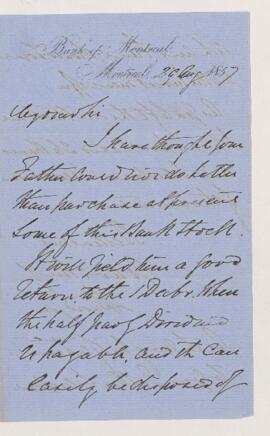 Bank of Montreal
Montreal, 29 Aug 1857
My dear Sir
I have thought your
Father could not do better
than purchase at present
some of this Bank Stock.
It will yield him a good
return, to the 1 Decbr. When
the half yearly Dividend
is payable, and it can
easily be disposed of